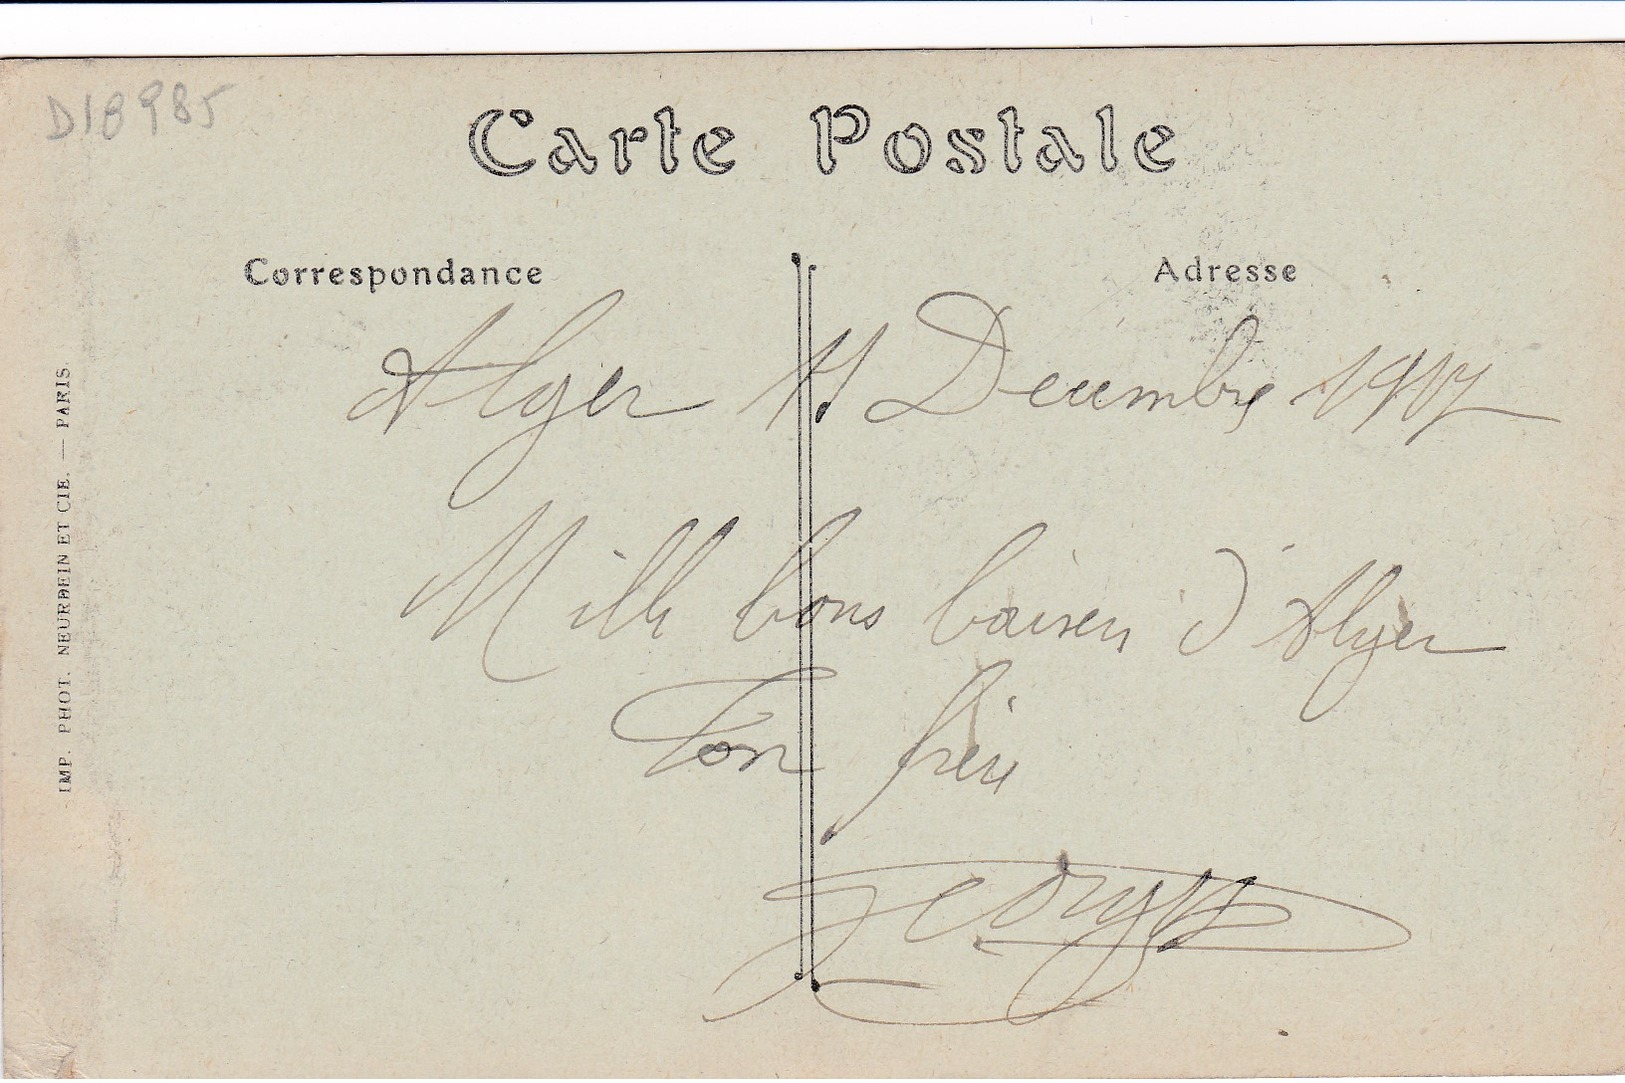 D18985
Carte Postale
Correspondance
Adresse
Alger 11 Decembre 1917
Mille bons baisers d'Alger
Ton frère
Georges
IMP. PHOT. NEURDEIN ET CIE. — PARIS